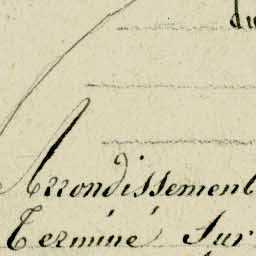 du
Arrondissement
Terminé Sur